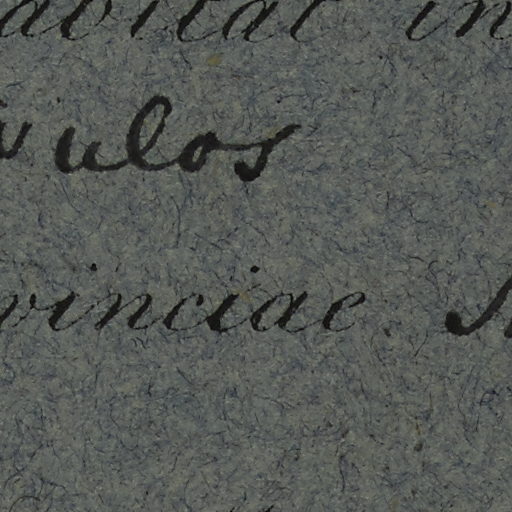 habitat in
vulos
vinciae